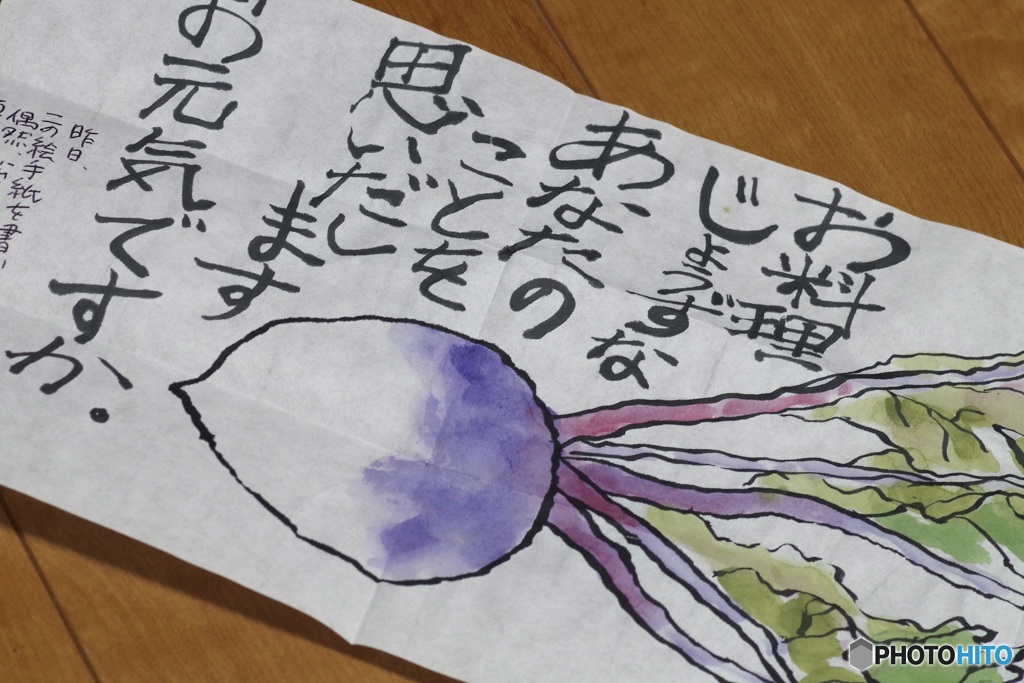 お料理
じょうずな
あなたの
ことを
思いだし
ます
お元気ですか。
昨日、
この絵手紙を書い
偶然、
PHOTOHITO